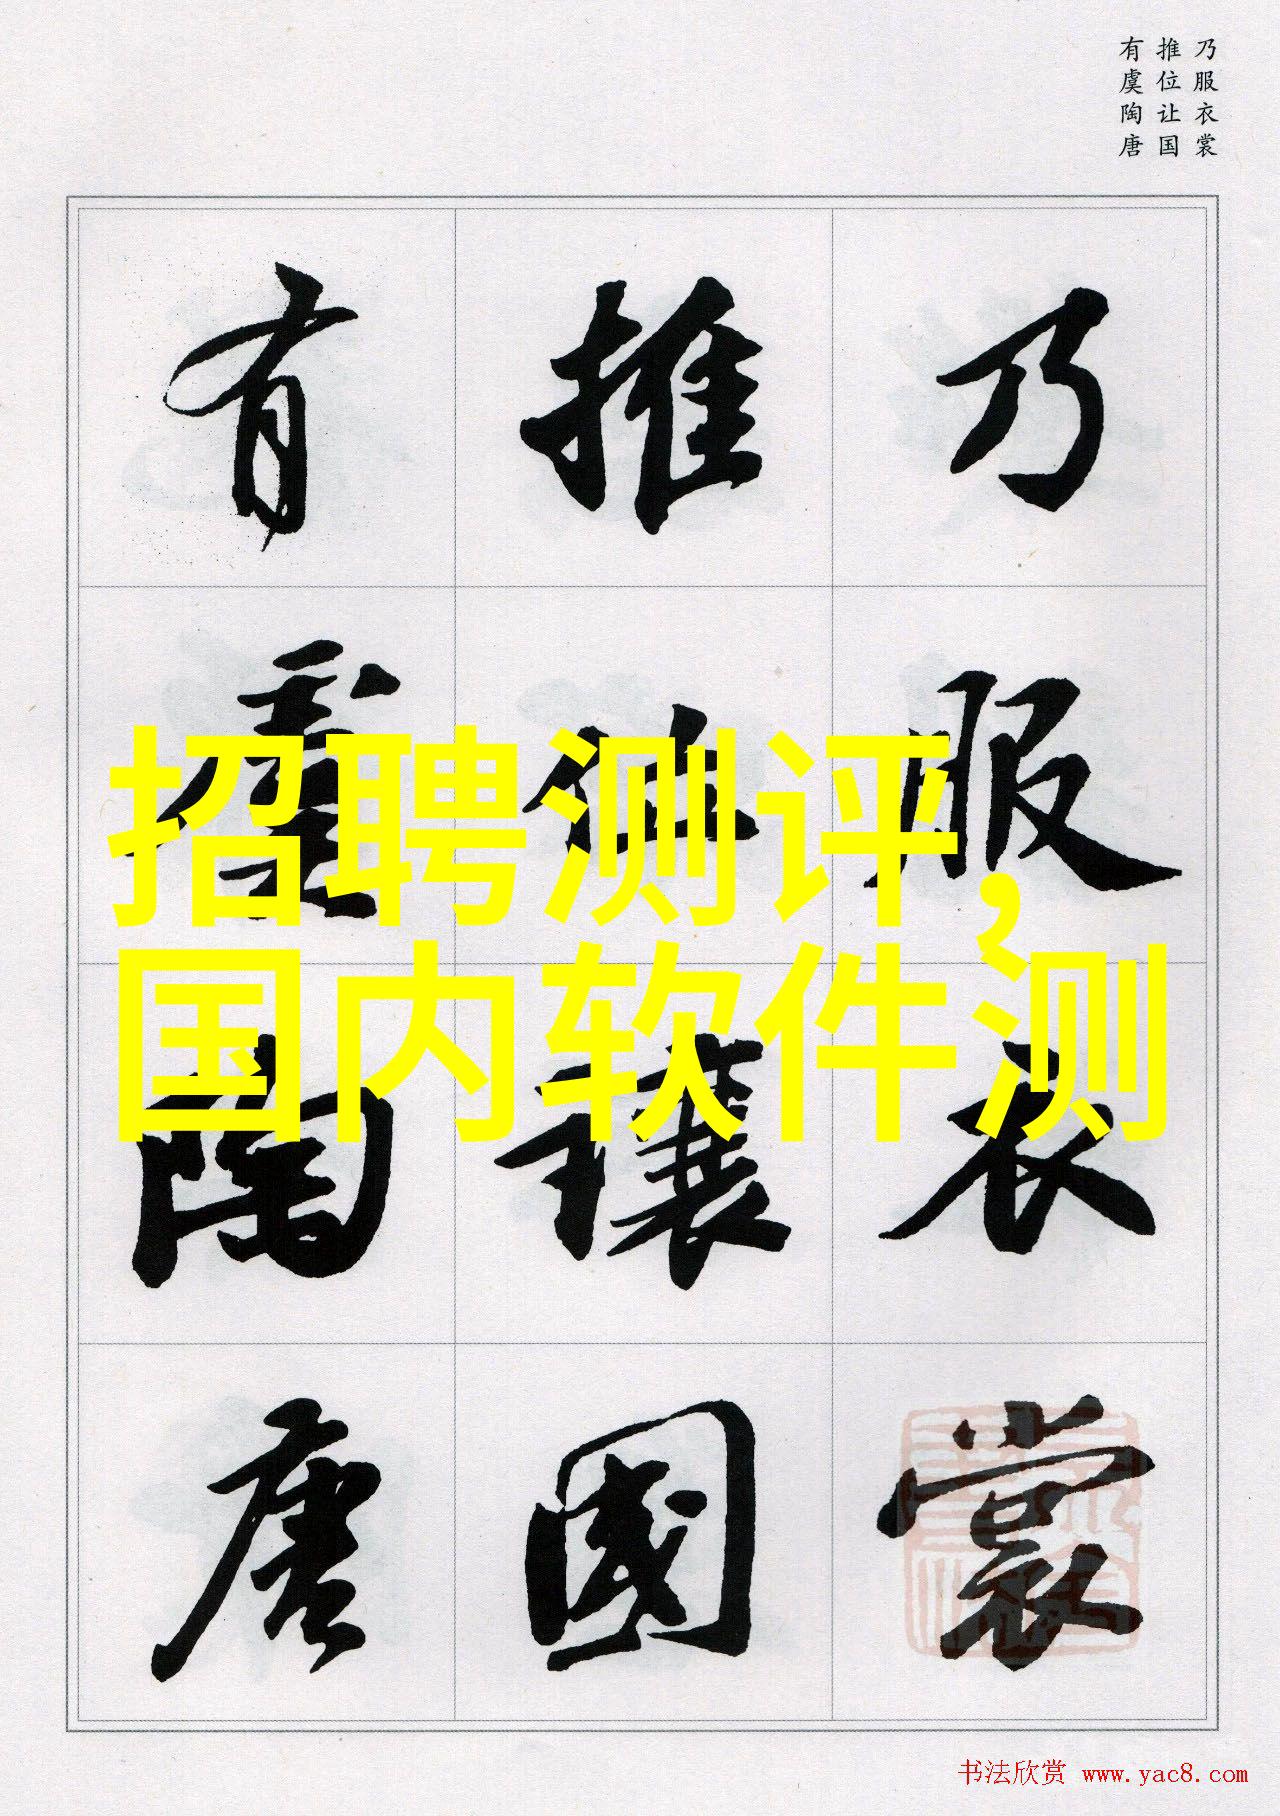 乃服衣裳
推位让国
有虞陶唐
乃服衣裳
推位讓國
有虞陶唐
招聘测评,
国内软件测
书法欣赏 www.yac8.com